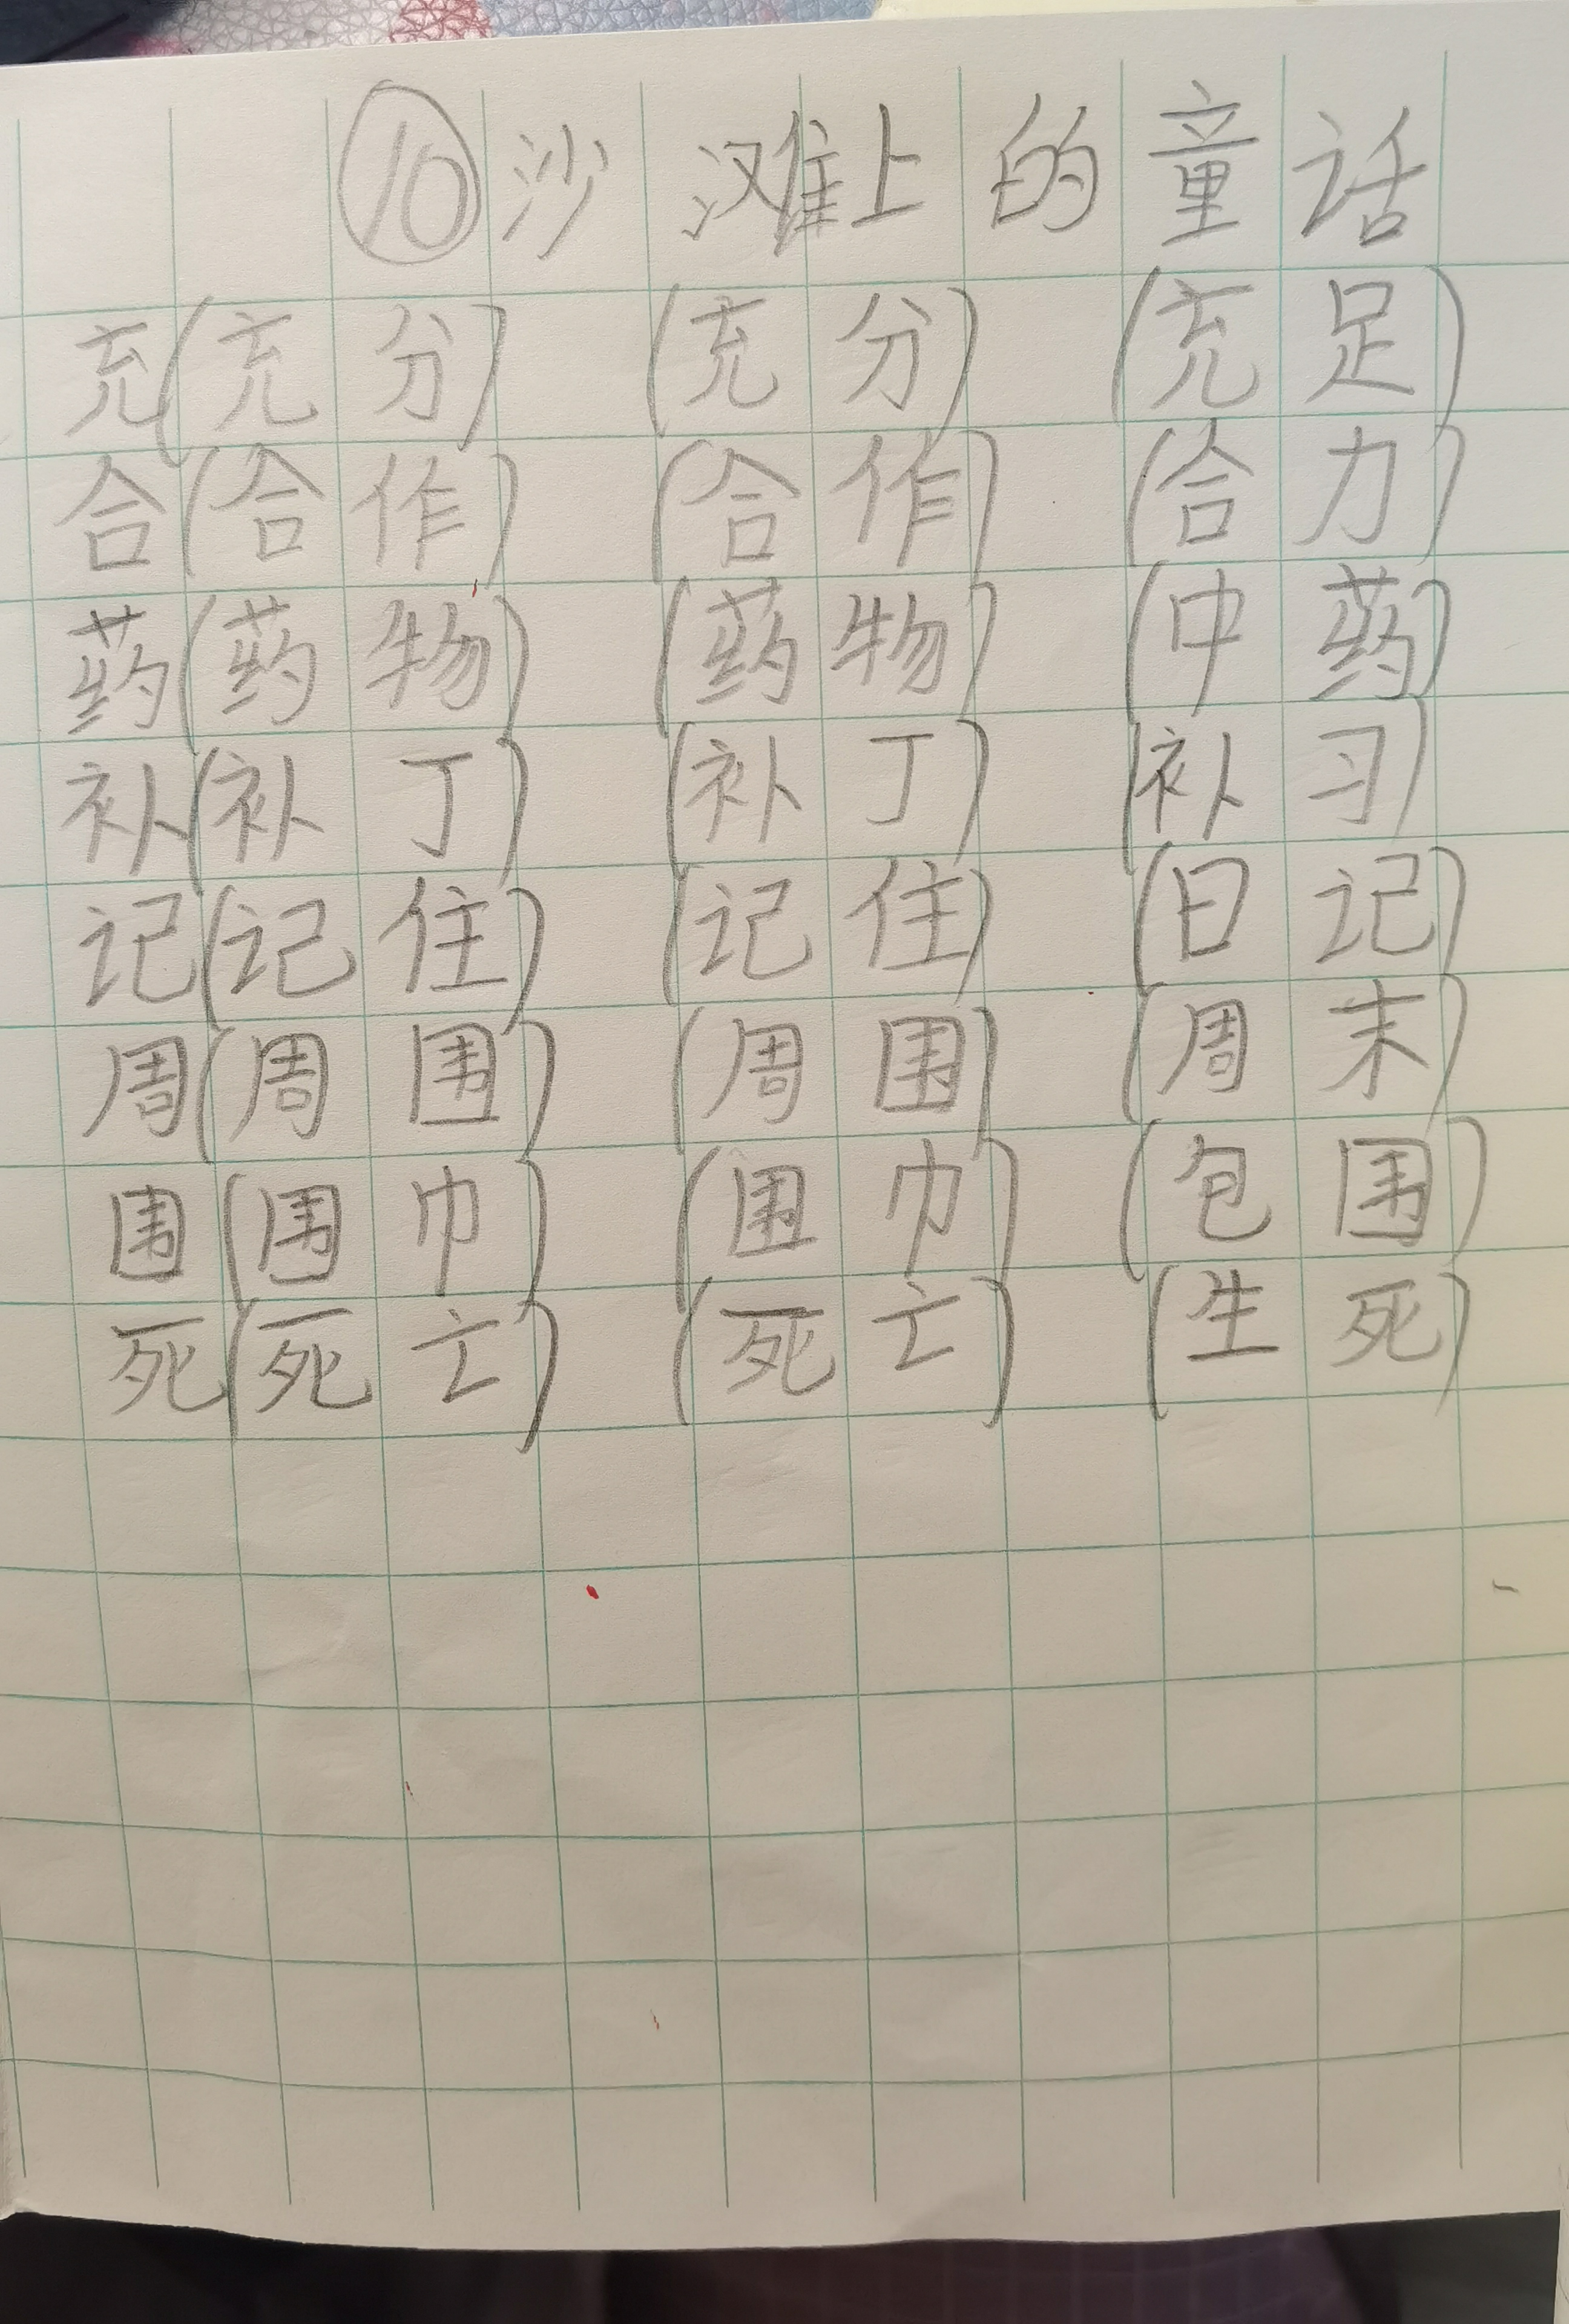 ⑩沙滩上的童话
充(充分) (充分) (充足)
合(合作) (合作) (合力)
药(药物) (药物) (中药)
补(补丁) (补丁) (补习)
记(记住) (记住) (日记)
周(周围) (周围) (周末)
围(围巾) (围巾) (包围)
死(死亡) (死亡) (生死)